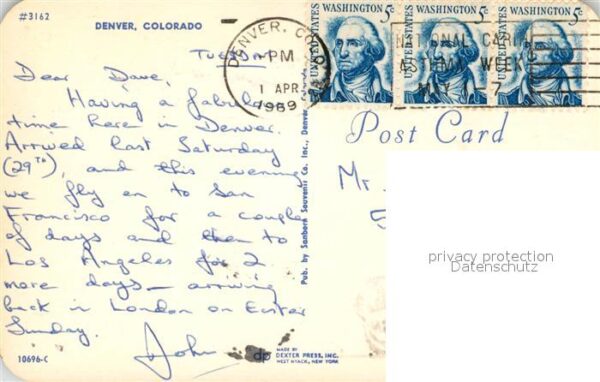 #3162
DENVER, COLORADO
TUESDAY
Dear Dave,
Having a fabulous
time here in Denver.
Arrived last Saturday
(29TH), and this evening
we fly on to San
Francisco for a couple
of days and then to
Los Angeles for 2
more days - arriving
back in London on Easter
Sunday.
John
10696-C
MADE BY
dp DEXTER PRESS, INC.
WEST NYACK, NEW YORK
Pub. by Sanborn Souvenir Co. Inc., Denver,
DENVER, CO
PM
1 APR
1969
UNITED STATES WASHINGTON 5c
UNITED STATES WASHINGTON 5c
UNITED STATES WASHINGTON 5c
ASTHMA WEEK
MAY 1-7
Post Card
Mr.
privacy protection
Datenschutz